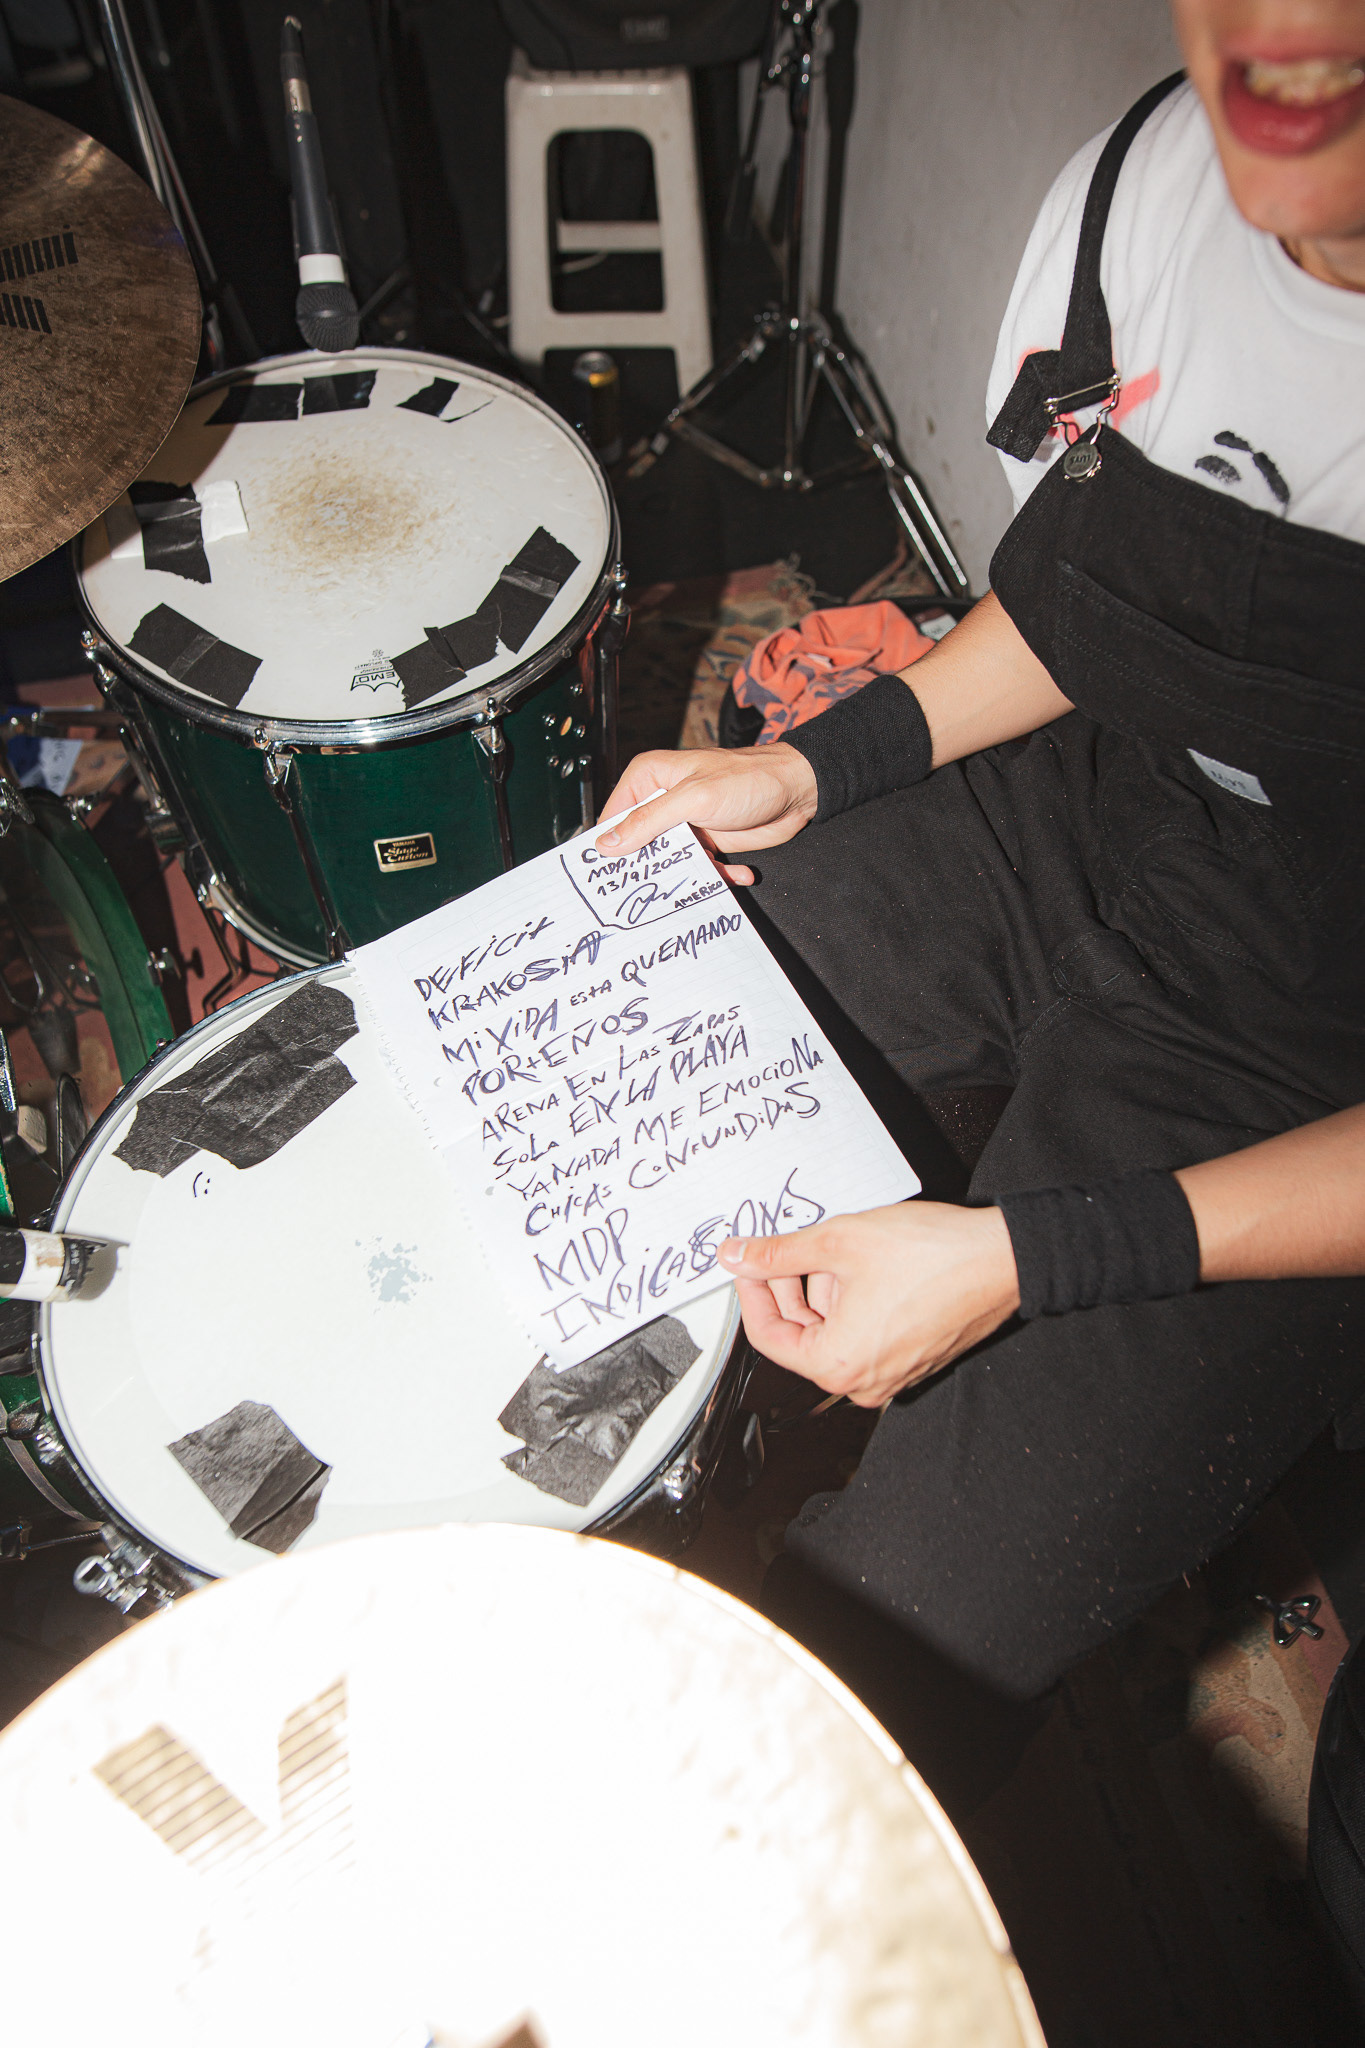 MDP, ARG
13/9/2025
AMÉRICO
DEFICIT
KRAKOSIA
MI VIDA ESTA QUEMANDO
PORTEÑOS
ARENA EN LAS ZAPAS
SOLA EN LA PLAYA
YA NADA ME EMOCIONA
CHICAS CONFUNDIDAS
MDP
YAMAHA
Stage
Custom
EMO
K